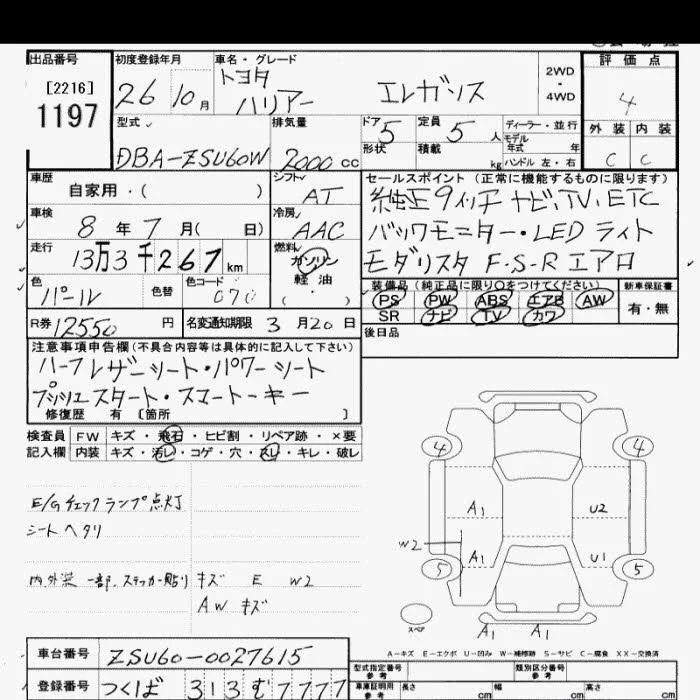 出品番号
[2216]
1197
初度登録年月
26 10月
車名・グレード
トヨタ
ハリアー エレガンス
2WD
・
4WD
評価点
4
外装 内装
C C
型式
DBA-ZSU60W
排気量
2000 cc
ドア 5
形状
定員 5 人
積載 kg
ディーラー・並行
モデル
年式 年
ハンドル 左・右
車歴
自家用・( )
シフト
AT
車検
8 年 7 月( 日)
冷房
AAC
走行
13万3千267km
燃料
ガソリン
・
軽油
( )
色
パール
色替
色コード
070
R券 12550 円
名変通知期限 3 月 20 日
セールスポイント (正常に機能するものに限ります)
純正9インチナビ、TV、ETC
バックモニター・LEDライト
モデリスタ F・S・R エアロ
装備品 (純正品に限り○をつけてください)
PS PW ABS エアB AW
SR ナビ TV カワ
新車保証書
有・無
後日品
注意事項申告欄(不具合内容等は具体的に記入して下さい)
ハーフレザーシート・パワーシート
プッシュスタート・スマートキー
修復歴 有 〔箇所 〕
検査員 FW キズ・飛石・ヒビ割・リペア跡・×要
記入欄 内装 キズ・汚レ・コゲ・穴・スレ・キレ・破レ
E/Gチェックランプ点灯
シートヘタリ
内外装 一部、ステッカー貼り キズ E W2
AW キズ
4 4
A1 U2
W2
A1 U1
5 5
スペア
A1 A1
A-キズ E-エクボ U-凹み W-補修跡 S-サビ C-腐食 XX-交換済
車台番号 ZSU60-0027615
登録番号 つくば 313 む 7777
型式指定番号
参考
類別区分番号
参考
車庫証明用
参考
長さ cm 幅 cm 高さ cm